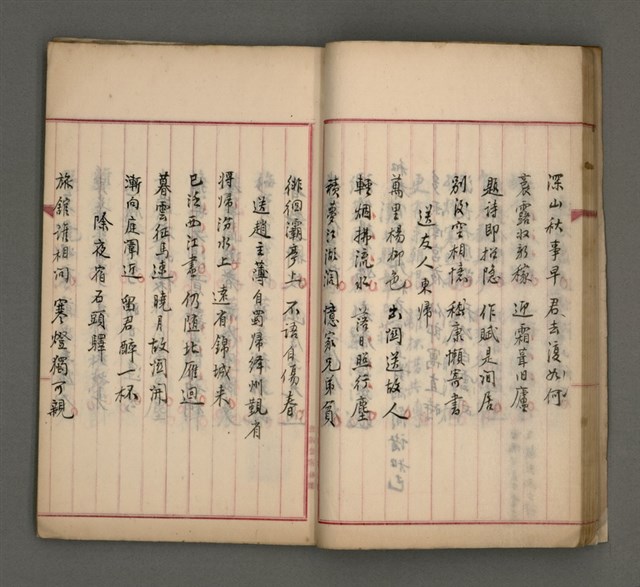 深山秋事早 君去復如何
裛露收新稼 迎霜葺旧廬
題詩即招隐 作賦是閒居
别後空相憶 嵇康懶寄書
送友人東帰
萬里楊柳色 出関送故人
輕烟拂流水 落日照行塵
積夢江湖闊 憶家兄弟貧
徘徊灞亭上 不語自傷春
送趙主薄自蜀帰絳州覲省
将帰汾水上 遠省錦城来
已泛西江盡 仍隨北雁迴
暮雲征馬速 曉月故関開
漸向庭闈近 留君醉一杯
除夜宿石頭驛
旅館誰相问 寒燈獨可親